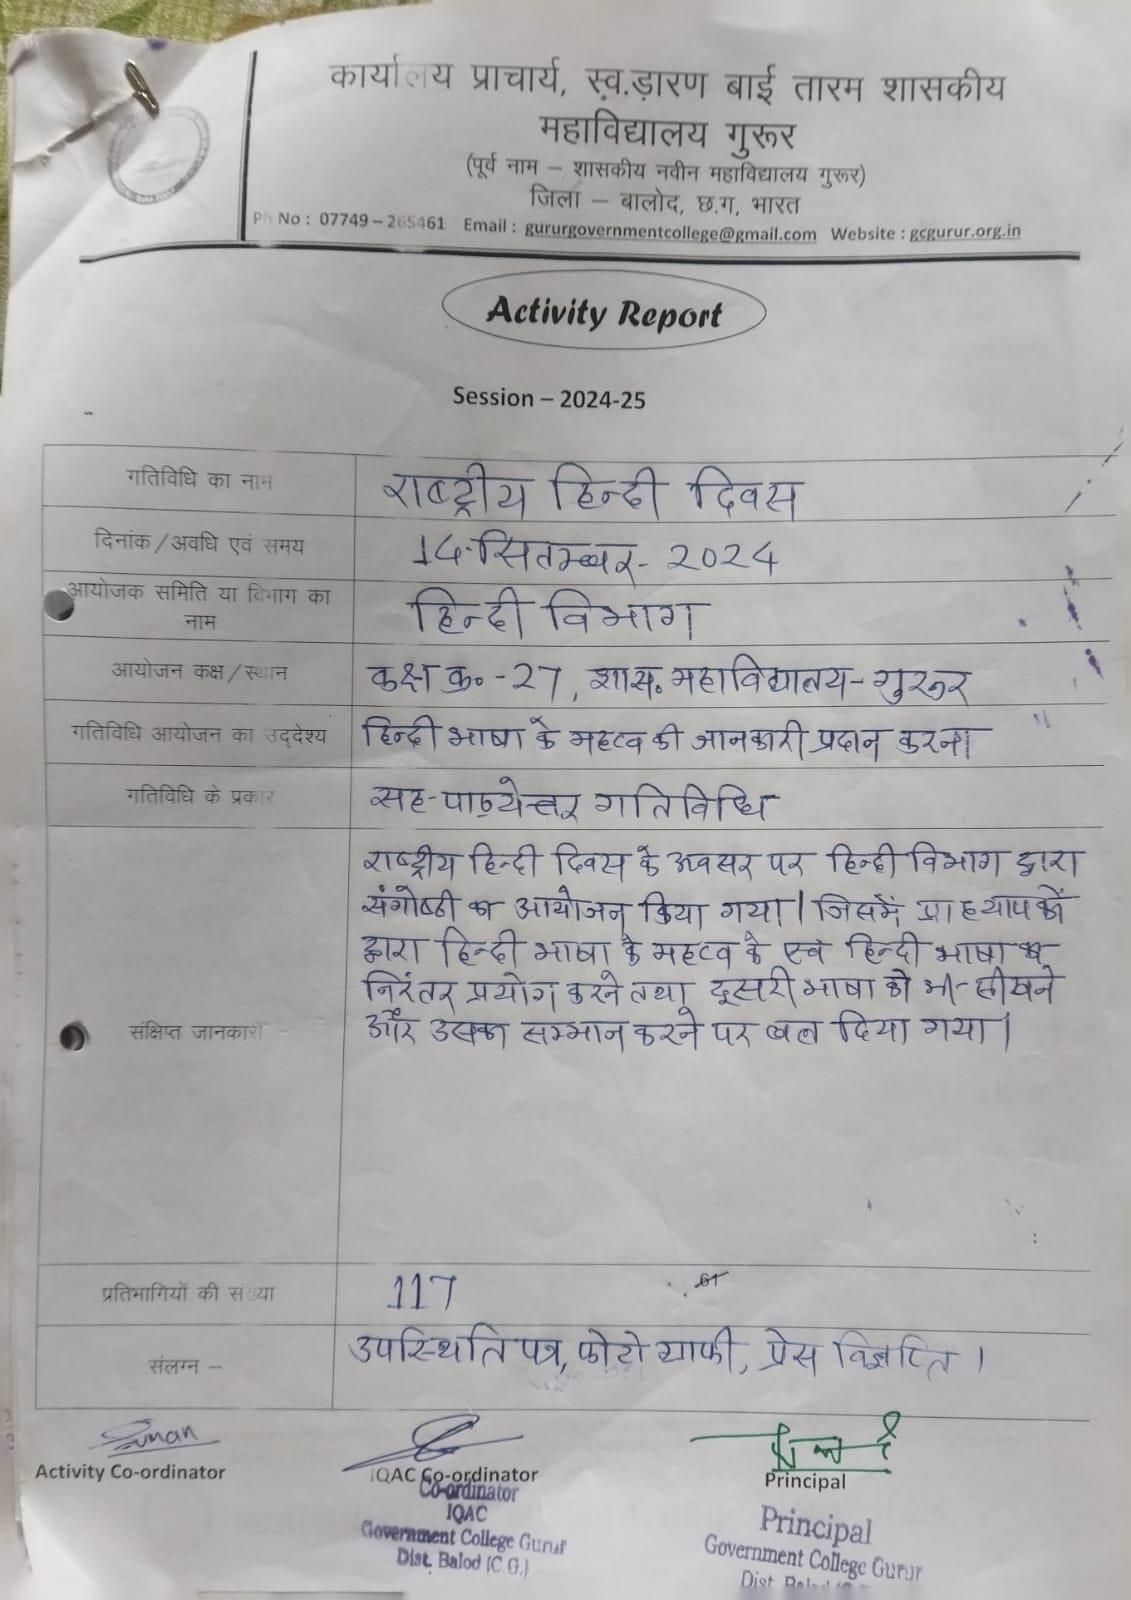 कार्यालय प्राचार्य, स्व.ड़ारण बाई तारम शासकीय
महाविद्यालय गुरूर
(पूर्व नाम – शासकीय नवीन महाविद्यालय गुरूर)
जिला – बालोद, छ.ग, भारत
Ph No : 07749 – 265461 Email : gururgovernmentcollege@gmail.com Website : gcgurur.org.in
Activity Report
Session – 2024-25
गतिविधि का नाम राष्ट्रीय हिन्दी दिवस
दिनांक/अवधि एवं समय 14-सितम्बर- 2024
आयोजक समिति या विभाग का
नाम हिन्दी विभाग
आयोजन कक्ष/स्थान कक्ष क्र० -27, शास. महाविद्यालय-गुरूर
गतिविधि आयोजन का उद्देश्य हिन्दी भाषा के महत्व की जानकारी प्रदान करना
गतिविधि के प्रकार सह-पाठ्येत्तर गतिविधि
संक्षिप्त जानकारी
राष्ट्रीय हिन्दी दिवस के अवसर पर हिन्दी विभाग द्वारा
संगोष्ठी का आयोजन किया गया। जिसमें प्राध्यापकों
द्वारा हिन्दी भाषा के महत्व के एवं हिन्दी भाषा
निरंतर प्रयोग करने तथा दूसरी भाषा को भी सीखने
और उसका सम्मान करने पर बल दिया गया।
प्रतिभागियों की संख्या 117
संलग्न – उपस्थिति पत्र, फोटोग्राफी, प्रेस विज्ञप्ति।
Activity Co-ordinator
IQAC Co-ordinator
Principal
Co-ordinator
IQAC
Government College Gurur
Dist. Balod (C.G.)
Principal
Government College Gurur
Dist. Balod